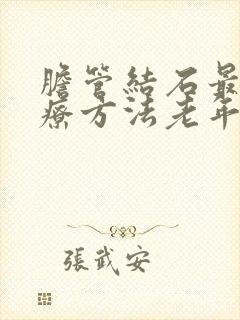 膽管結石最
療方法老年
張武安